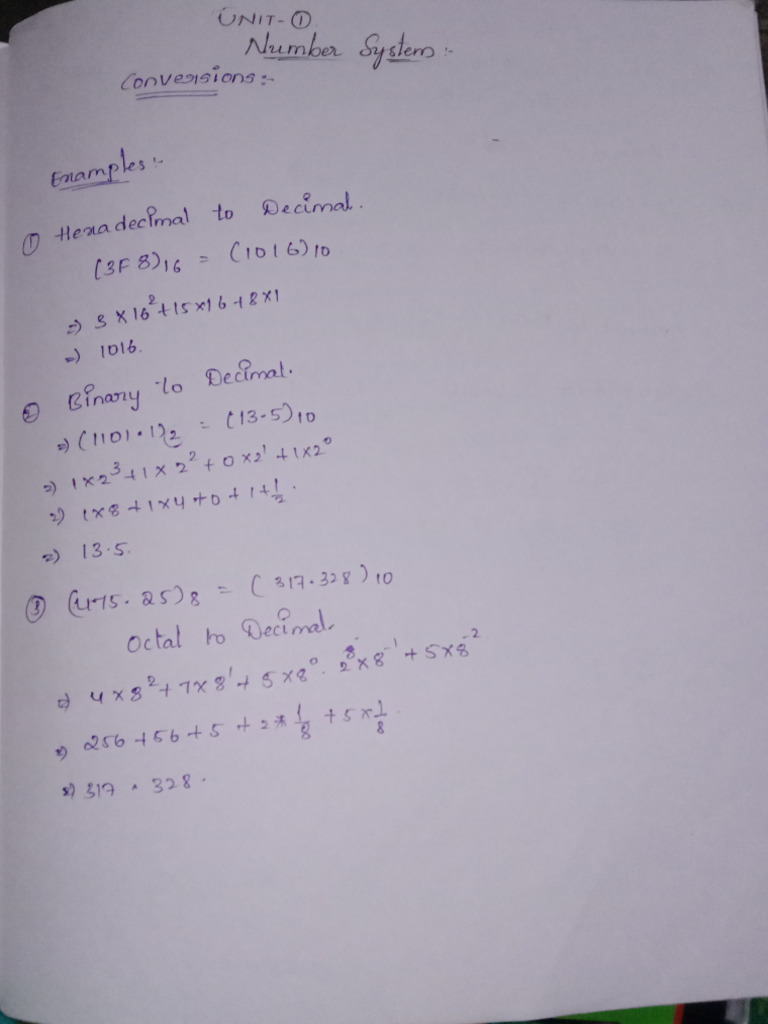 UNIT-①
Number System :-
Conversions :-
Examples :-
① Hexadecimal to Decimal.
(3F8)16 = (1016)10
=> 3 × 16² + 15×16 + 8×1
=> 1016.
② Binary to Decimal.
=> (1101.1)2 = (13.5)10
=> 1×2³ + 1×2² + 0×2¹ + 1×2⁰
=> 1×8 + 1×4 + 0 + 1 + 1/2.
=> 13.5.
③ (475.25)8 = (317.328)10
Octal to Decimal.
=> 4×8² + 7×8¹ + 5×8⁰. 2×8⁻¹ + 5×8⁻²
=> 256 + 56 + 5 + 2×1/8 + 5×1/8.
=> 317.328.